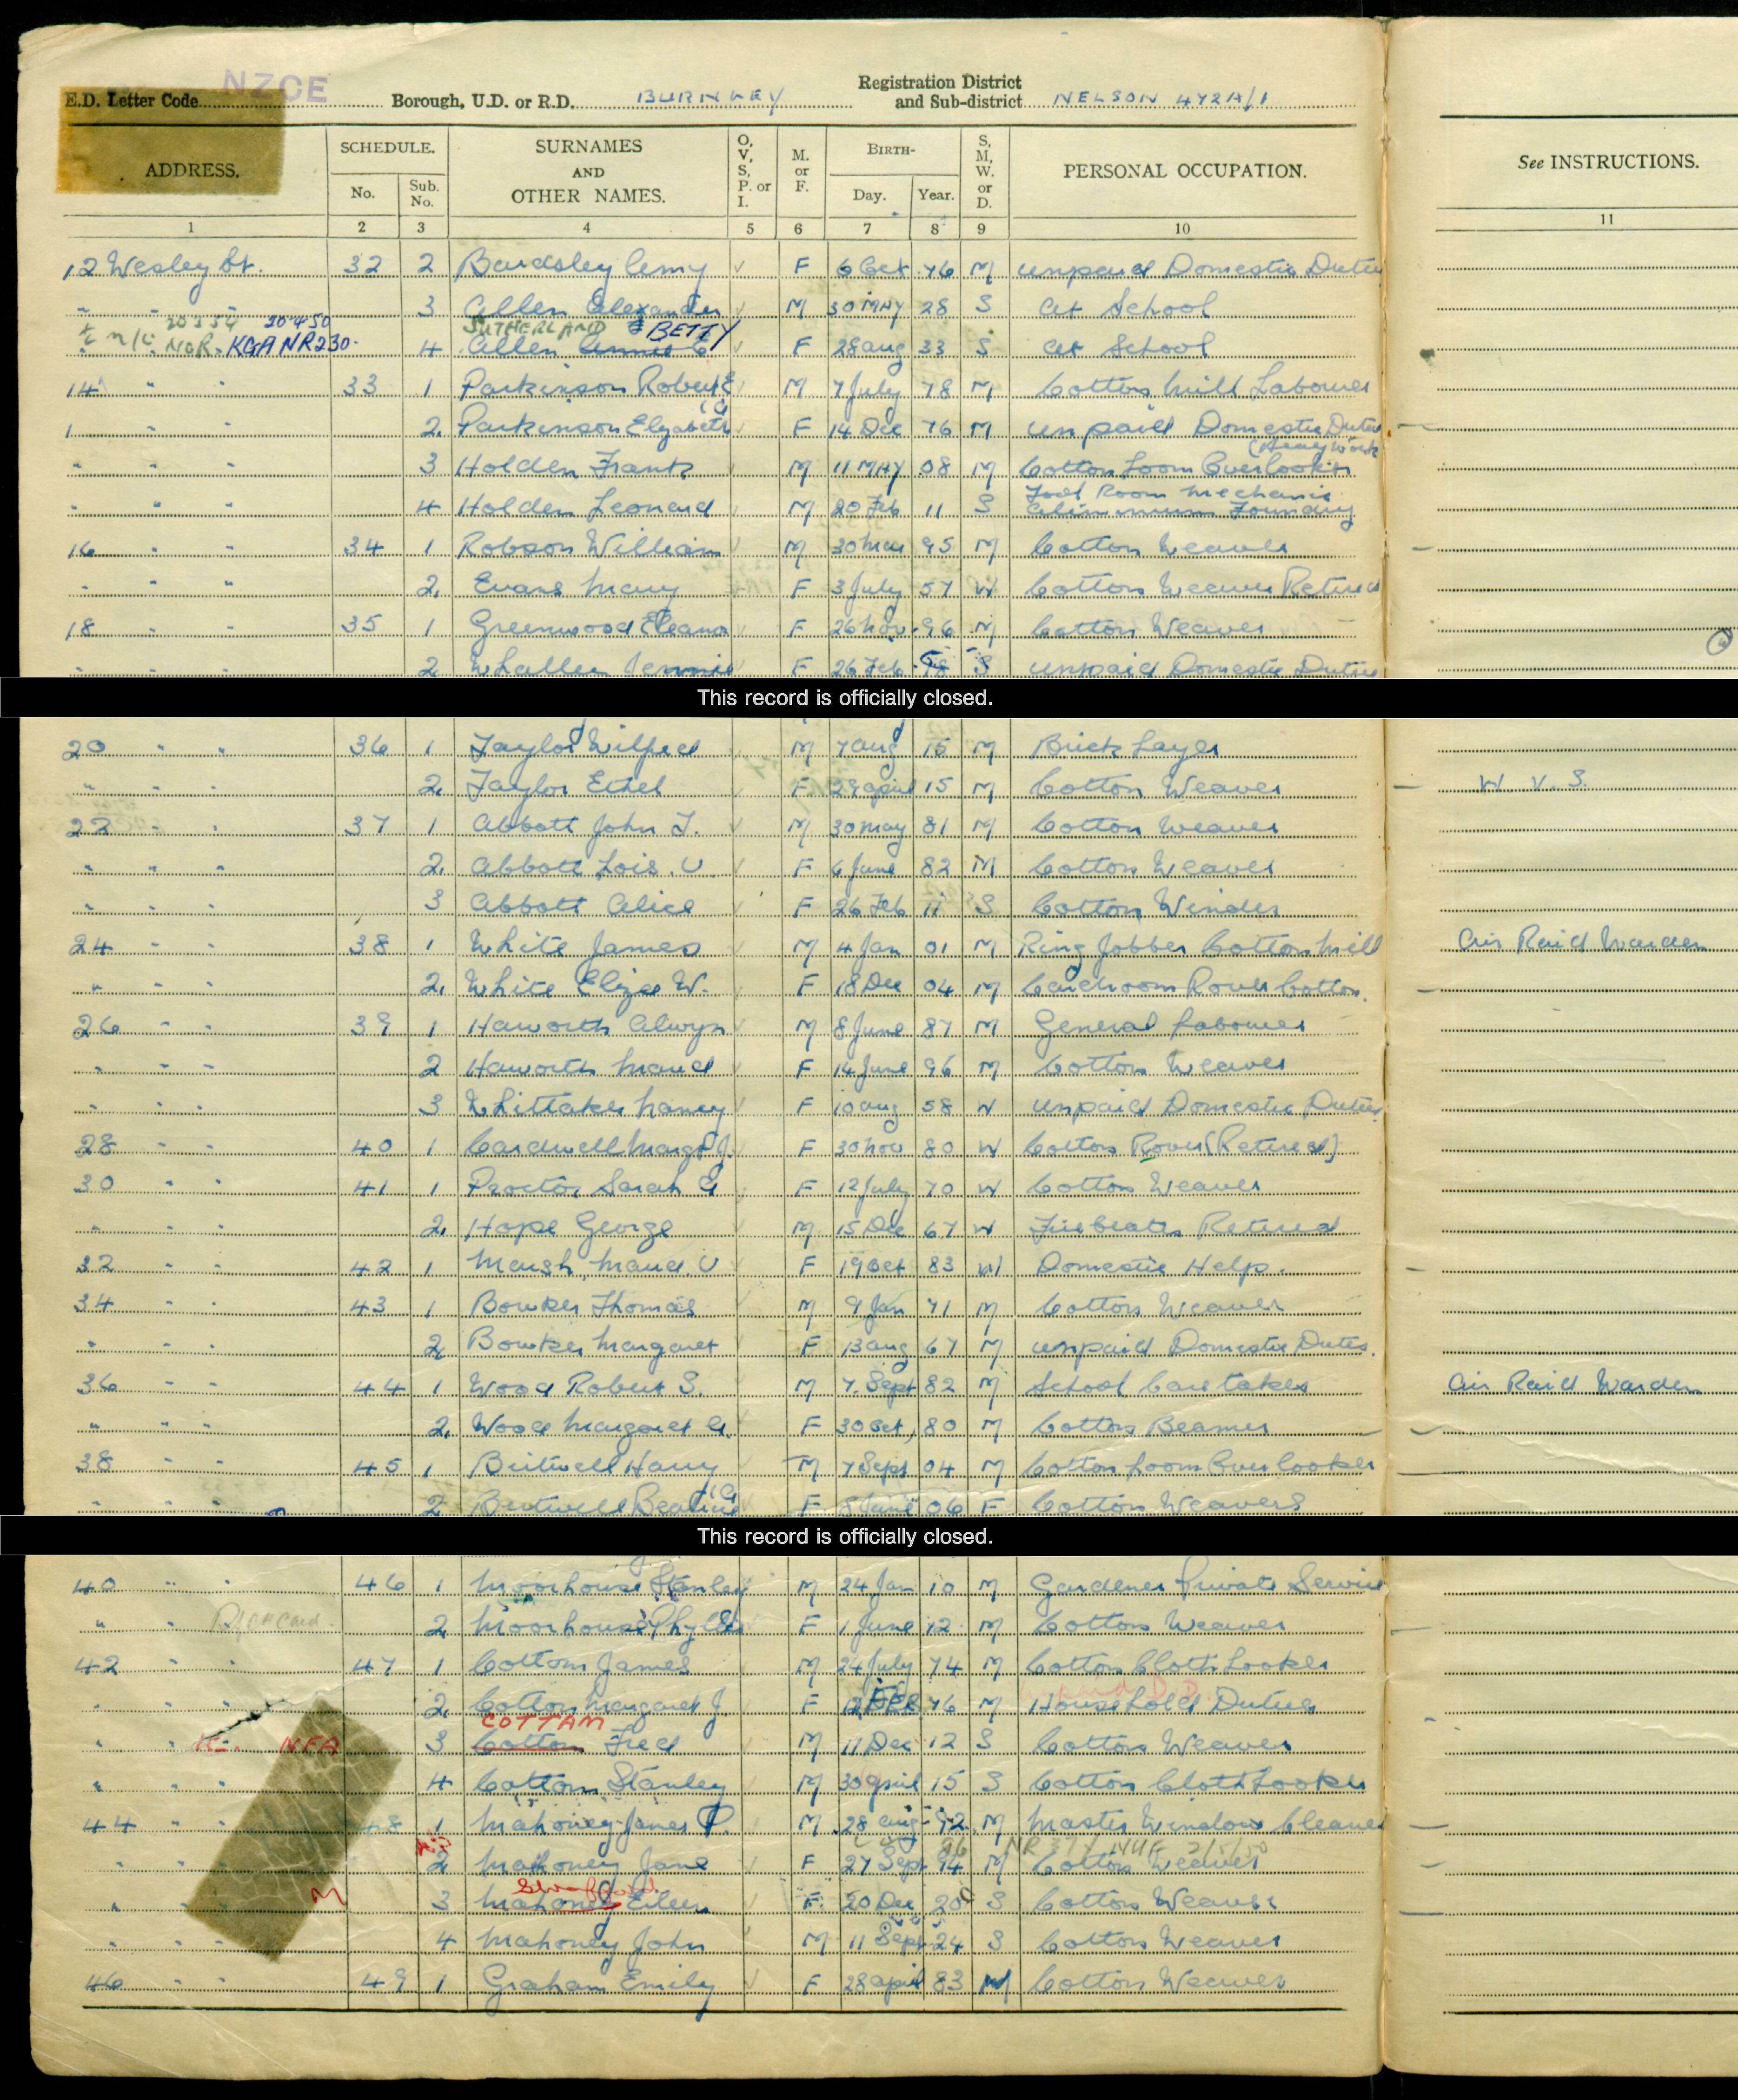 NZCE
E.D. Letter Code Borough, U.D. or R.D. BURNLEY Registration District and Sub-district NELSON 472A/1
ADDRESS. SCHEDULE. No. Sub. No. SURNAMES AND OTHER NAMES. O, V, S, P. or I. M. or F. BIRTH- Day. Year. S, M, W. or D. PERSONAL OCCUPATION. See INSTRUCTIONS.
1 2 3 4 5 6 7 8 9 10 11
12 Wesley St. 32 2 Bardsley Amy F 6 Oct 76 M Unpaid Domestic Duties
" " " 3 Allen Alexander M 30 MAY 28 S At School
20 3 54 20.4.50 SUTHERLAND BETTY
n/c NOR. KGA NR230. 4 Allen Annie E F 28 Aug 33 S At School
14 " " 33 1 Parkinson Robert E M 7 July 78 M Cotton Mill Labourer
" " 2 Parkinson Elizabeth A F 14 Dec 76 M Unpaid Domestic Duties
(Heavy Work
" " " 3 Holden Frank M 11 MAY 08 M Cotton Loom Overlooker
Tool Room Mechanic
" " " 4 Holden Leonard M 20 Feb 11 S Aluminium Foundry
16 " " 34 1 Robson William M 30 Mar 95 M Cotton Weaver
" " " 2 Evans Mary F 3 July 57 W Cotton Weaver Retired
18 " " 35 1 Greenwood Eleano F 26 Nov 96 M Cotton Weaver
" " " 2 Whalley Jennie F 26 Feb 98 S Unpaid Domestic Duties
This record is officially closed.
20 " " 36 1 Taylor Wilfred M 7 Aug 15 M Brick Layer
" " " 2 Taylor Ethel F 29 April 15 M Cotton Weaver W. V. S.
22 " " 37 1 Abbott John T. M 30 May 81 M Cotton Weaver
" " " 2 Abbott Lois. U. F 6 June 82 M Cotton Weaver
" " " 3 Abbott Alice F 26 Feb 11 S Cotton Winder
24 " " 38 1 White James M 4 Jan 01 M Ring Jobber Cotton Mill Air Raid Warden
" " " 2 White Eliza W. F 18 Dec 04 M Cardroom Rover Cotton.
26 " " 39 1 Haworth Alwyn M 8 June 87 M General Labourer
" " " 2 Haworth Maud F 14 June 96 M Cotton Weaver
" " " 3 Whittaker Nancy F 10 Aug 58 W Unpaid Domestic Duties
28 " " 40 1 Cardwell Margt J. F 30 Nov 80 W Cotton Rover (Retired)
30 " " 41 1 Proctor Sarah A F 12 July 70 W Cotton Weaver
" " " 2 Hope George M 15 Dec 67 W Firebeater Retired
32 " " 42 1 Marsh Maud. U F 19 Oct 83 W Domestic Help.
34 " " 43 1 Bowker Thomas M 9 Jan 71 M Cotton Weaver
" " " 2 Bowker Margaret F 13 Aug 67 M Unpaid Domestic Duties.
36 " " 44 1 Wood Robert S. M 7 Sept 82 M School Caretaker Air Raid Warden
" " " 2 Wood Margaret A. F 30 Oct 80 M Cotton Beamer
38 " " 45 1 Birtwell Harry M 7 Sept 04 M Cotton Loom Overlooker
" " " 2 Birtwell Beatrice A F 8 June 06 F Cotton Weavers
This record is officially closed.
40 " " 46 1 Moorhouse Stanley M 24 Jan 10 M Gardener Private Service
" " 2 Moorhouse Phyllis F 1 June 12 M Cotton Weaver
42 " " 47 1 Cottom James M 24 July 74 M Cotton Cloth Looker
" " " 2 Cottom Margaret J F 12 FEB 76 M Household Duties
COTTAM
" " NFA 3 Cottom Fred M 11 Dec 12 S Cotton Weaver
" " " 4 Cottom Stanley M 30 April 15 S Cotton Cloth Looker
44 " " 48 1 Mahoney James P. M 28 Aug 92 M Master Window Cleaner
" " " 2 Mahoney Jane F 27 Sept 94 M Cotton Weaver
M 3 Mahoney Eileen F 20 Dec 20 S Cotton Weaver
" " " 4 Mahoney John M 11 Sept 24 S Cotton Weaver
46 " " 49 1 Graham Emily F 28 April 83 W Cotton Weaver